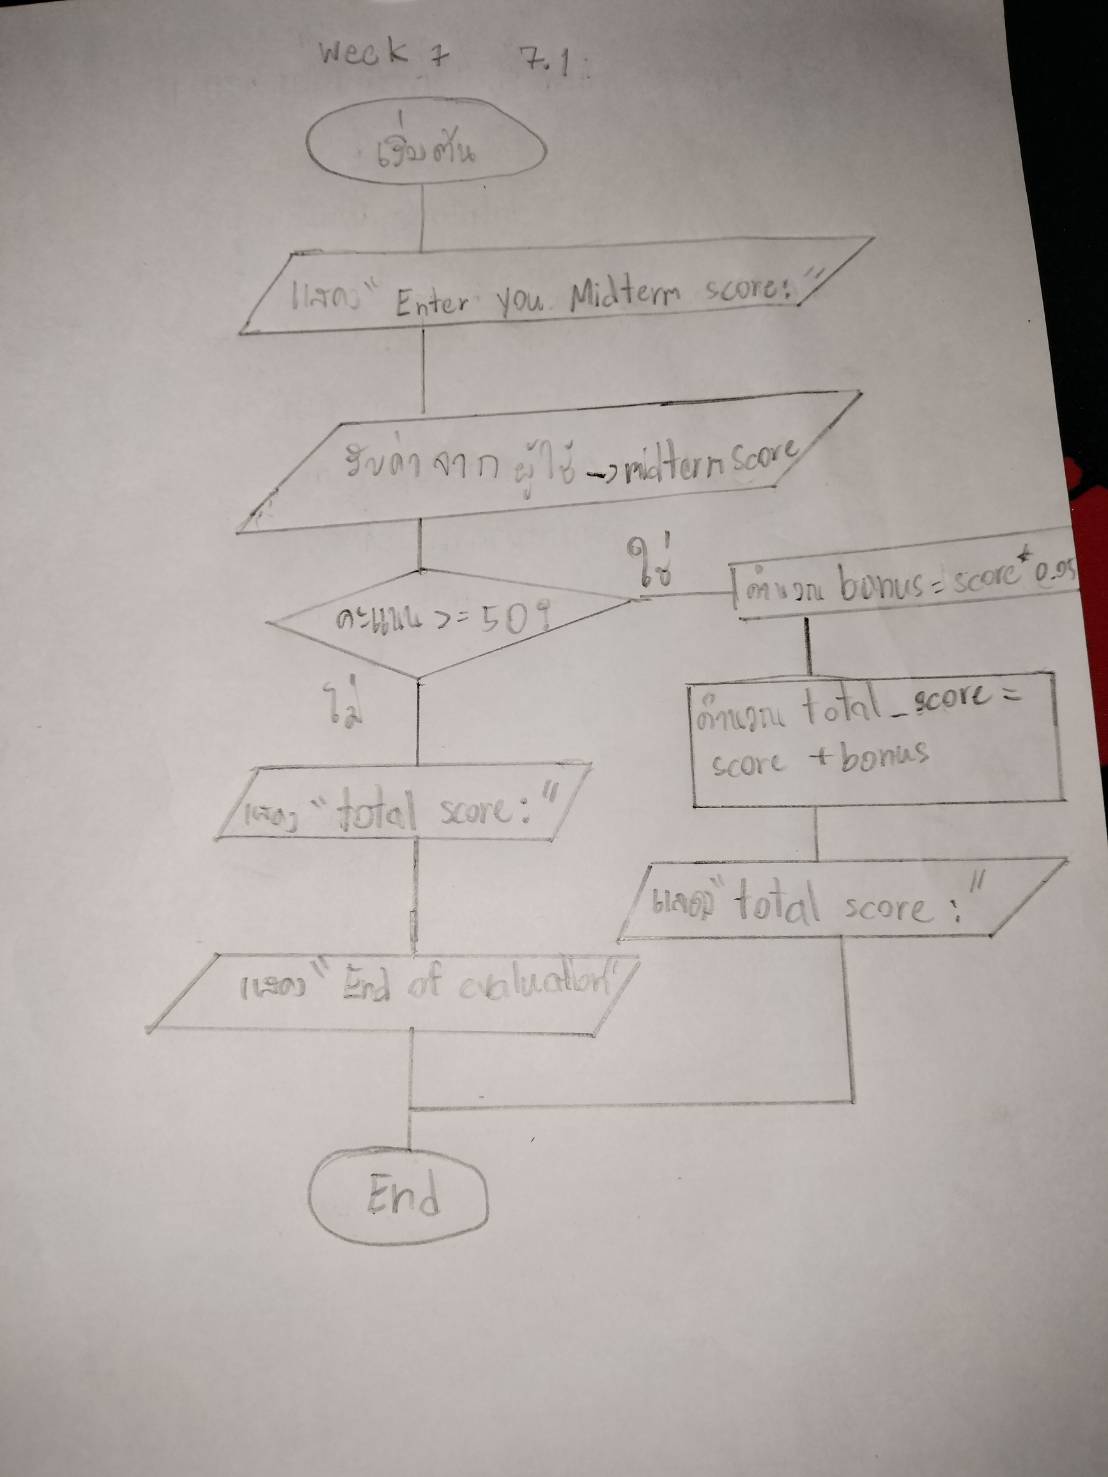 week 7 7.1:
เริ่มต้น
แสดง "Enter you Midterm score:"
รับค่าจาก ผู้ใช้ -> midterm score
ใช่
คำนวณ bonus = score * 0.05
คะแนน >= 50?
ไม่
คำนวณ total_score =
score + bonus
แสดง "total score:"
แสดง "total score:"
แสดง "End of evaluation"
End